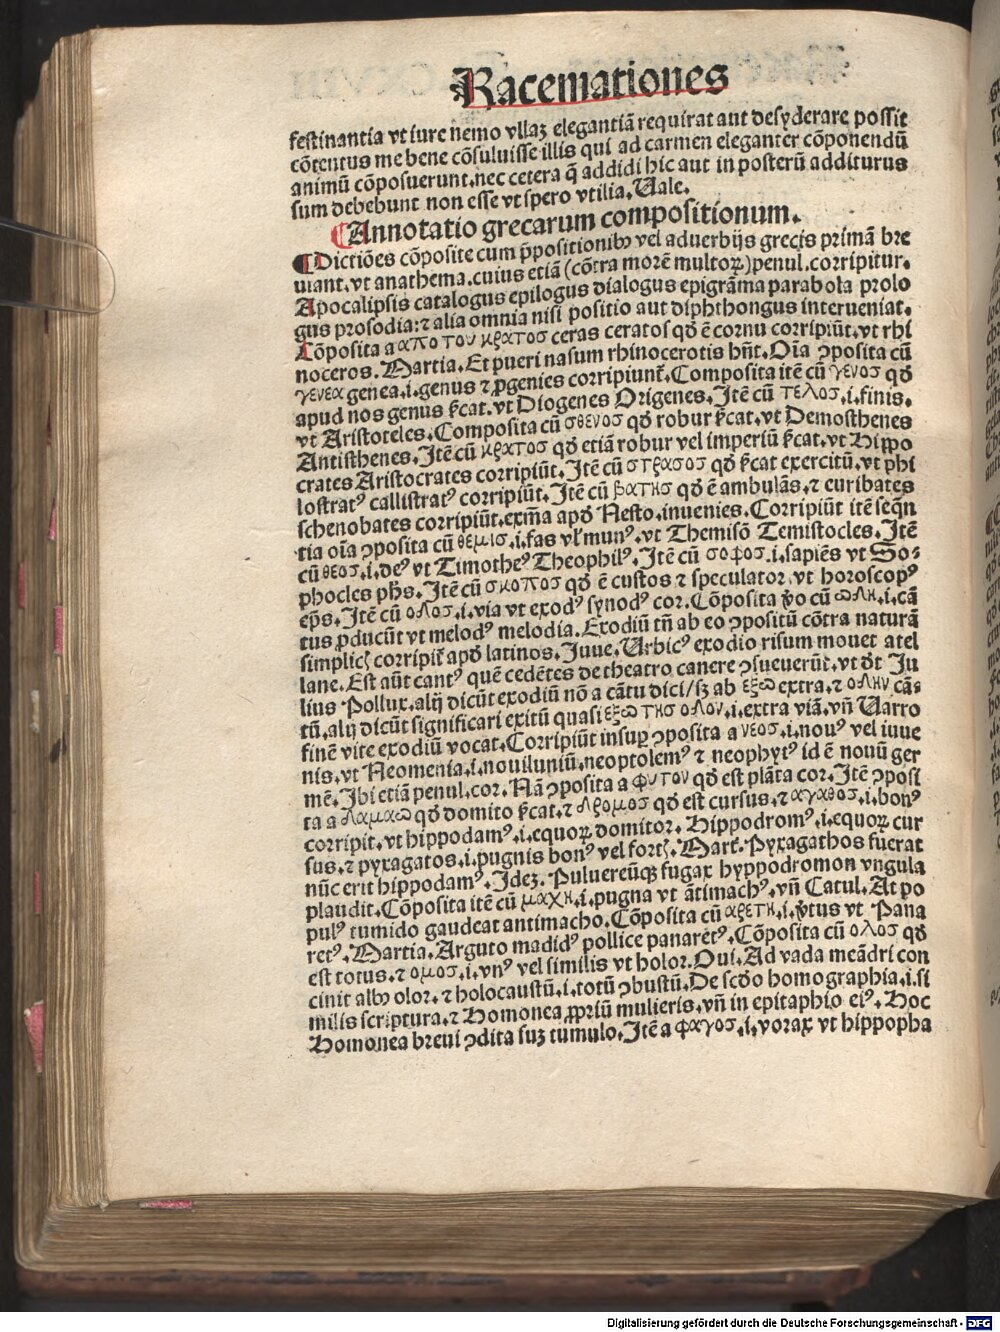 Racemationes
festinantia vt iure nemo vllaꝫ elegantiã requirat aut desyderare possit
cõtentus me bene cõsuluisse illis qui ad carmen eleganter cõponendũ
animũ cõposuerunt.nec cetera q̃ addidi hic aut in posterũ additurus
sum debebunt non esse vt spero vtilia.Uale.
¶Annotatio grecarum compositionum.
¶Dictiões cõposite cum p̃positionibꝰ vel aduerbijs grecis primã bre
uiant.vt anathema.cuius etiã (cõtra morẽ multoꝝ)penul.corripitur.
Apocalipsis catalogus epilogus dialogus epigrãma parabola prolo
gus prosodia:⁊ alia omnia nisi positio aut diphthongus interueniat.
Cõposita a απο του κρατος ceras ceratos qđ ẽ cornu corripiũt.vt rhi
noceros.Martia.Et pueri nasum rhinocerotis hñt.Oĩa ꝯposita cũ
γενεα genea.i.genus ⁊ ꝓgenies corripiunt̃.Composita itẽ cũ γενος qđ
apud nos genus s̃cat.vt Diogenes Origenes.Itẽ cũ τελος.i.finis.
vt Aristoteles.Composita cũ σθενος qđ robur s̃cat.vt Demosthenes
Antisthenes.Itẽ cũ κρατος qđ etiã robur vel imperiũ s̃cat.vt Hippo
crates Aristocrates corripiũt.Itẽ cũ στρασος qđ s̃cat exercitũ.vt phi
lostratꝰ callistratꝰ corripiũt.Itẽ cũ βατης qđ ẽ ambulãs.⁊ curibates
schenobates corripiũt.exm̃a apđ Nesto.inuenies.Corripiũt itẽ seq̃n
tia oĩa ꝯposita cũ θεμις.i.fas vl̃ munꝰ.vt Themisõ Temistocles.Itẽ
cũ θεος.i.deꝰ vt Timotheꝰ Theophilꝰ.Itẽ cũ σοφος.i.sapiẽs vt So-
phocles ph̃s.Itẽ cũ σκοπος qđ ẽ custos ⁊ speculator.vt horoscopꝰ
ep̃s.Itẽ cũ ολος.i.via vt exodꝰ synodꝰ cor.Cõposita ṽo cũ ωλη.i.cã
tus ꝓducũt vt melodꝰ melodia.Exodiũ tñ ab eo ꝯpositũ cõtra naturã
simplicꝭ corripit̃ apđ latinos.Juue.Urbicꝰ exodio risum mouet atel
lane.Est aũt cantꝰ quẽ cedẽtes de theatro canere ꝯsueuerũt.vt đt Ju
lius Pollux.alij dicũt exodiũ nõ a cãtu dici/sꝫ ab εξω extra.⁊ ολην cã-
tũ.alij dicũt significari exitũ quasi εξω της ολου.i.extra viã.vñ Uarro
finẽ vite exodiũ vocat.Corripiũt insuꝑ ꝯposita a νεος.i.nouꝰ vel iuue
nis.vt Neomenia.i.nouiluniũ.neoptolemꝰ ⁊ neophytꝰ id ẽ nouũ ger
mẽ.Ibi etiã penul.cor.Nã ꝯposita a φυτου qđ est plãta cor.Itẽ ꝯposi
ta a λαμαω qđ domito s̃cat.⁊ λρομος qđ est cursus.⁊ αγαθος.i.bonꝰ
corripit.vt hippodamꝰ.i.equoꝝ domitor.Hippodromꝰ.i.equoꝝ cur
sus.⁊ pyxagatos.i.pugnis bonꝰ vel fortꝭ.Mart̃.Pyxagathos fuerat
nũc erit hippodamꝰ.Ideꝫ.Puluereũqꝫ fugax hyppodromon vngula
plaudit.Cõposita itẽ cũ μαχη.i.pugna vt ãtimachꝰ.vñ Catul.At po
pulꝰ tumido gaudeat antimacho.Cõposita cũ αρετη.i.ṽtus vt Pana
retꝰ.Martia.Arguto madidꝰ pollice panaretꝰ.Cõposita cũ ολος qđ
est totus.⁊ ομος.i.vnꝰ vel similis vt holor.Oui.Ad vada meãdri con
cinit albꝰ olor.⁊ holocaustũ.i.totũ ꝯbustũ.De scđo homographia.i.si
milis scriptura.⁊ Homonea ꝓpriũ mulieris.vñ in epitaphio eiꝰ.Hoc
Homonea breui ꝯdita suꝫ tumulo.Itẽ a φαγος.i.vorax vt hippopha
Digitalisierung gefördert durch die Deutsche Forschungsgemeinschaft - DFG